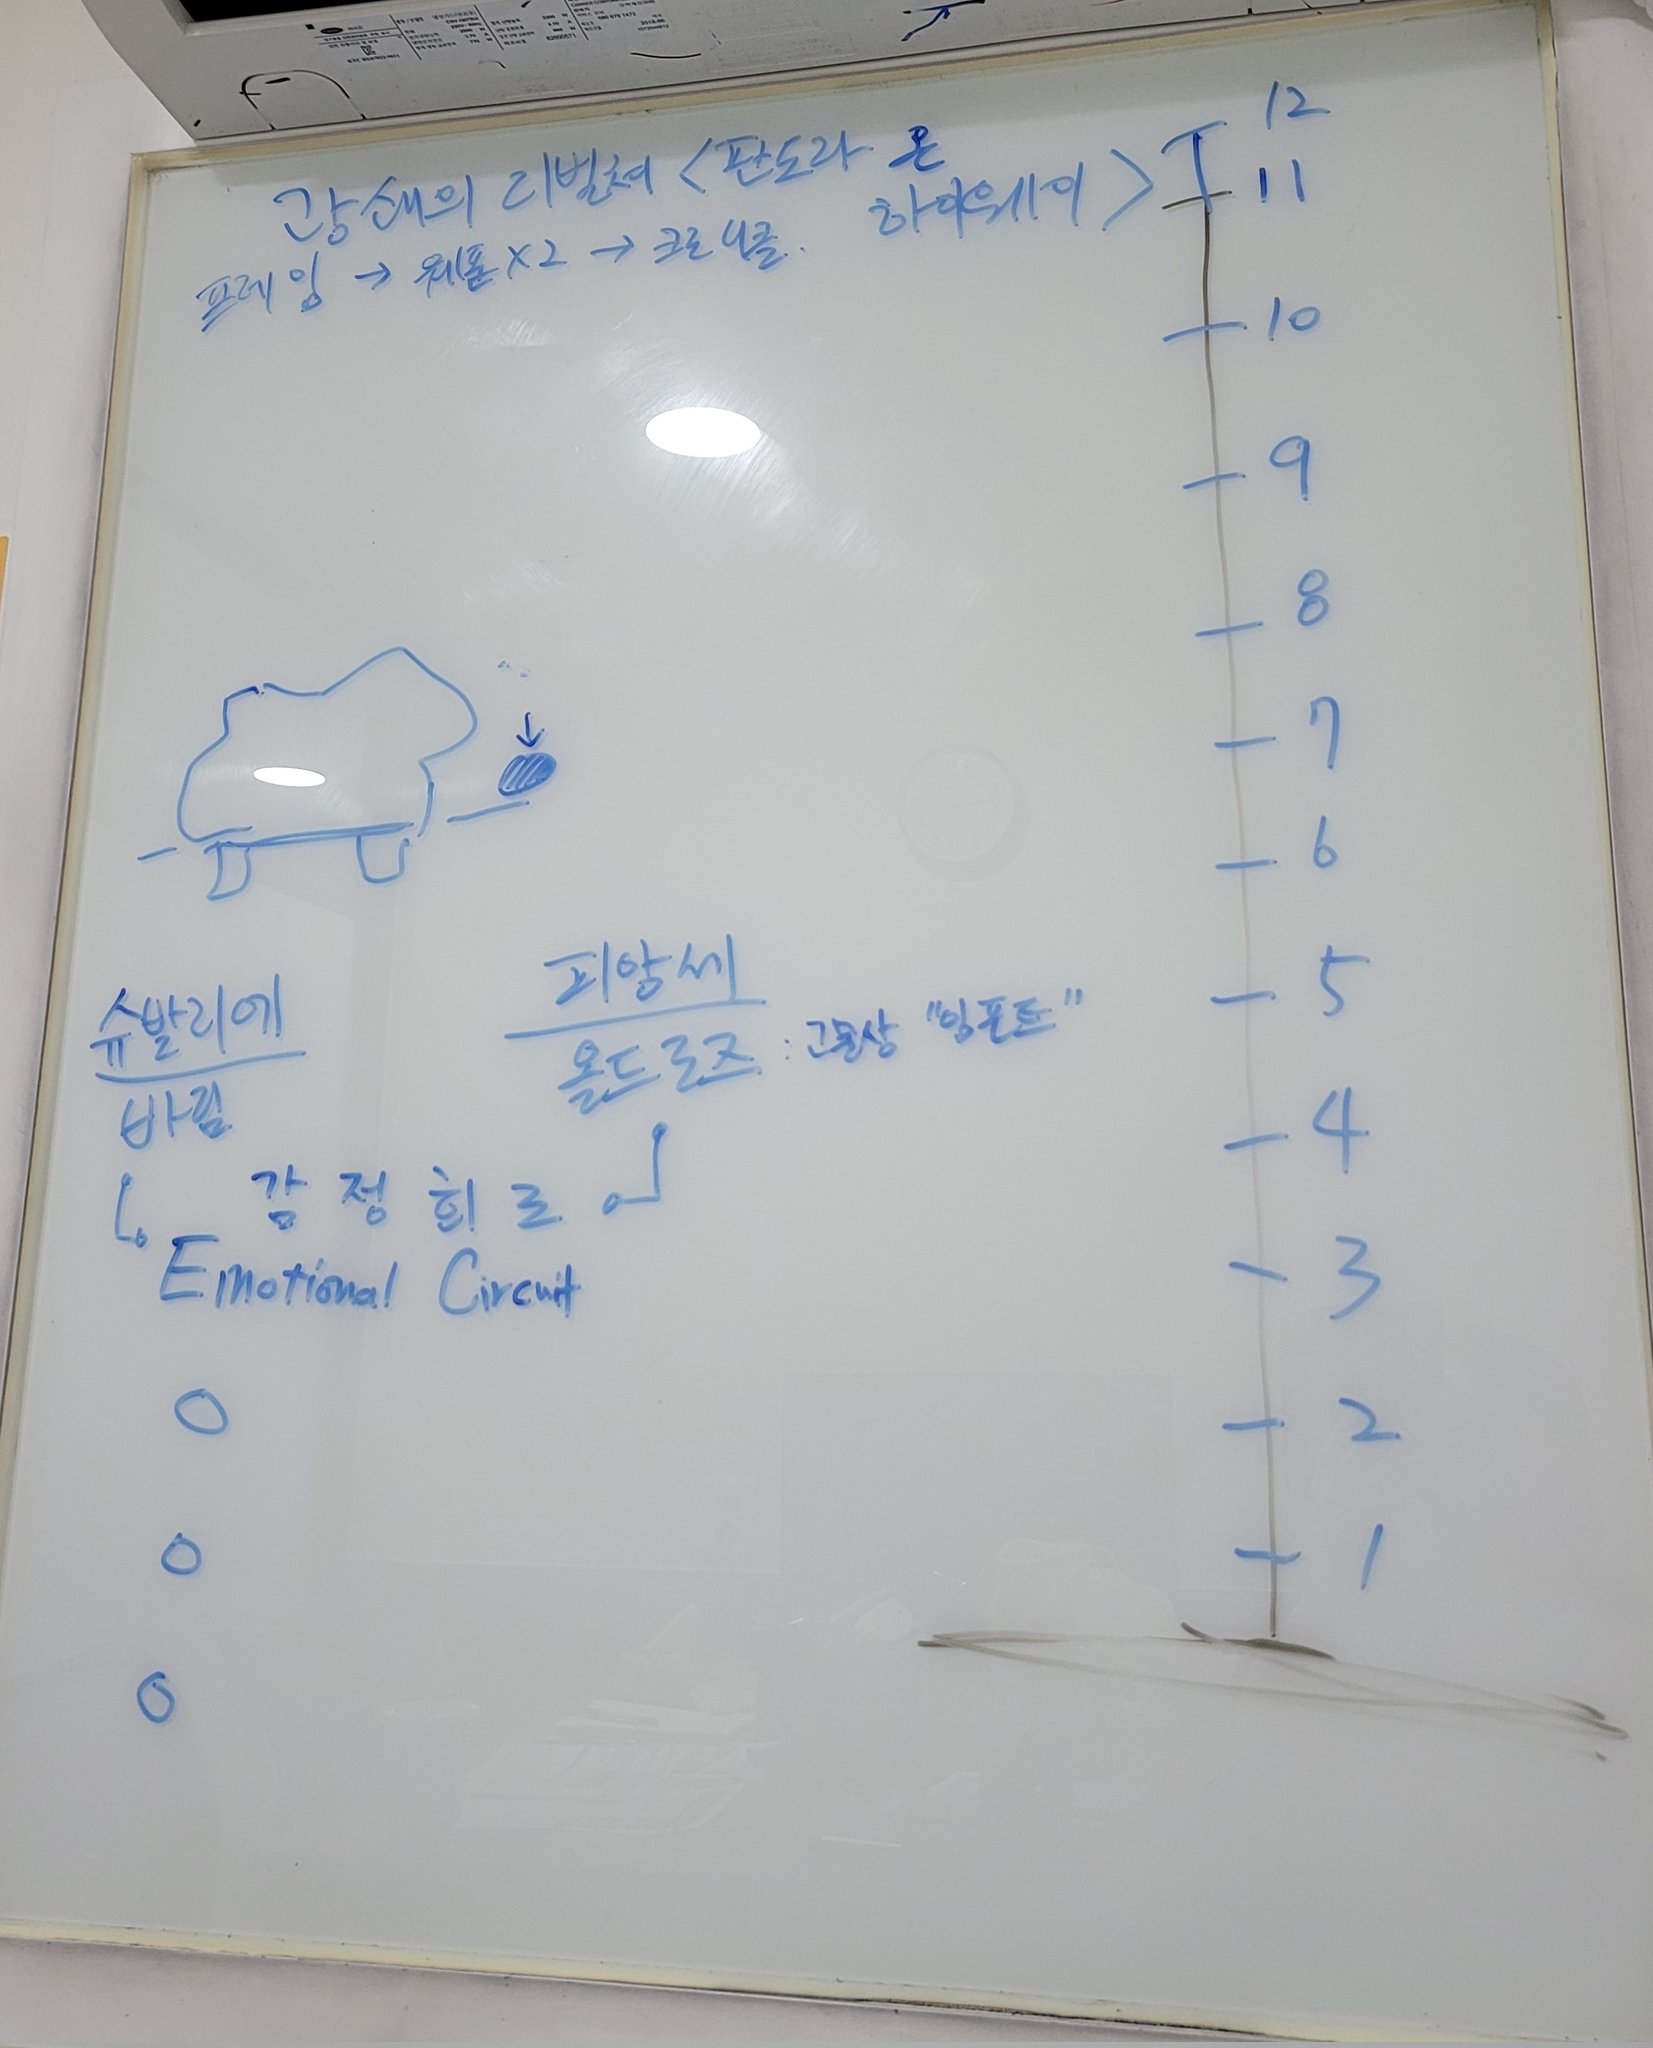 광쇄의 리벌처 <판도라 온
하이웨이>
프레임 → 웨폰 X2 → 크로니클.
12
11
10
9
8
7
6
5
4
3
2
1
슈발리에
바림
피앙세
올드로즈 : 고문상 "임포트"
감정회로
Emotional Circuit